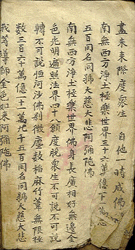 盡未來際度眾生 自他一時成佛
南無西方淨土極樂世界三十六萬億
五百同名同號大慈大悲阿弥陀佛
南無西方淨土極樂世界佛身長廣相好無邊金
色光明遍照法界四十八願度脫衆生不可說不可說
轉不可說恒河沙佛剎微塵數稻麻竹葦無限極
數三百六十萬億一十一萬九千五百同名同號大慈大悲
我等導師金色如來阿弥陀佛